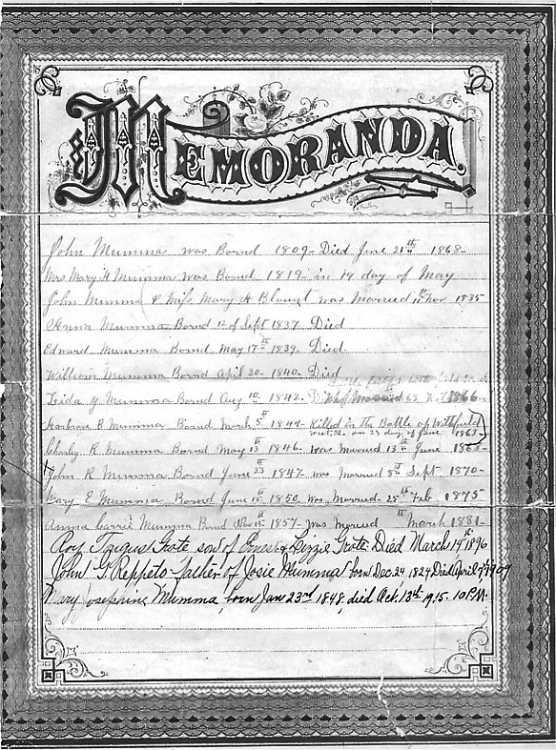 MEMORANDA.
John Mumma was Bornd 1809- Died June 21th 1868-
Mrs Mary H Mumma was Bornd 1819- in 14 day of May
John Mumma & Wife Mary H was Married Nov 1835
Anna Mumma Bornd 12 of Sept 1837. Died
Edward Mumma Bornd May 17th 1839. Died
William Mumma Bornd April 20- 1840. Died
Mumma Bornd Aug 10 1842. 1866-
Mumma Bornd March 5th 1844- Killed in the Battle of
on 23 day of June 1863-
Charley R Mumma Bornd May 13th 1846- was Married 13th June 1868-
John R Mumma Bornd June 23 1847- was Married 8th Sept 1870-
Mary E Mumma Bornd June 15th 1850 Was Married- 25th Feb 1875
Anna Carrie Mumma Bornd Nov 15th 1857. Was Maried th March 1881-
Roy Grote son of Ernest & Lizzie Grote Died March 14th 1896
John G. Reppeto father of Josie Mumma born Dec. 24 1824 Died April 1909
Mary Josephine Mumma, born Jan 23rd 1848, died Oct. 13th 1915. 10 P.M.